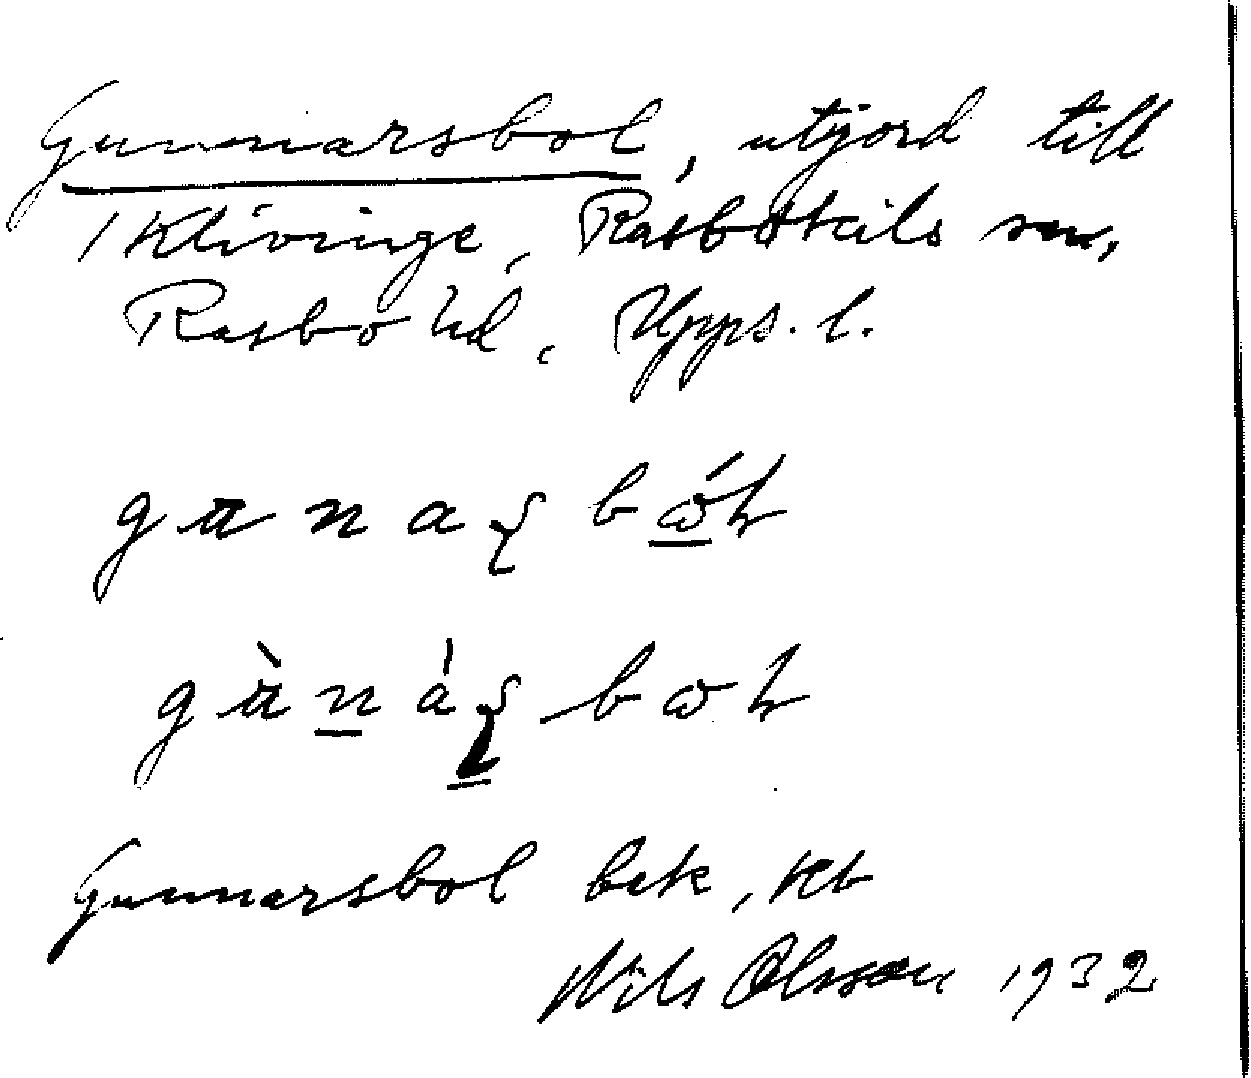 Gunnarsbol, utjord till
1 Klivinge, Rasbokils sn,
Rasbo hd, Upps. l.
Gunnarsbol bek, Kb
Nils Olsson 1932